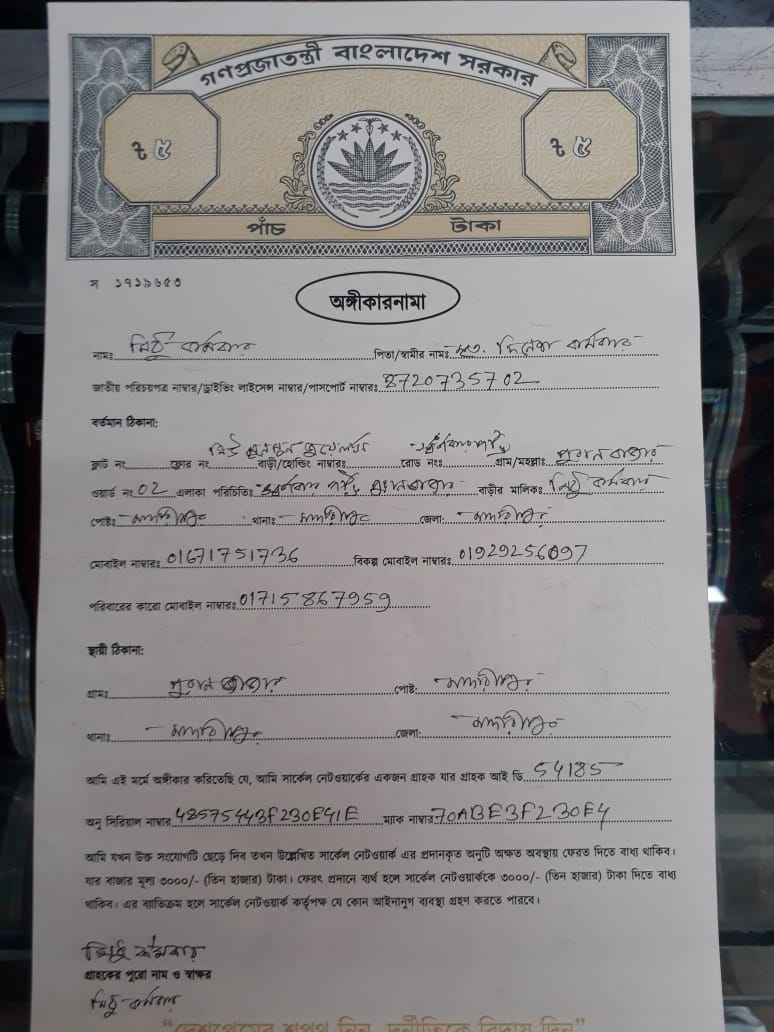 গণপ্রজাতন্ত্রী বাংলাদেশ সরকার
৳ ৫ ৳ ৫
পাঁচ টাকা
স ১৭১৯৬৫৩
অঙ্গীকারনামা
নামঃ মিঠু কর্মকার পিতা/স্বামীর নামঃ মৃত. দিনেশ কর্মকার
জাতীয় পরিচয়পত্র নাম্বার/ড্রাইভিং লাইসেন্স নাম্বার/পাসপোর্ট নাম্বারঃ 8720735702
বর্তমান ঠিকানা:
ফ্লাট নং ফ্লোর নং নিউ জুয়েলার্স বাড়ী/হোল্ডিং নাম্বারঃ স্বর্নকার পট্টি রোড নংঃ গ্রাম/মহল্লাঃ পুরান বাজার
ওয়ার্ড নং 02 এলাকা পরিচিতিঃ স্বর্নকার পট্টি পুরানবাজার বাড়ীর মালিকঃ মিঠু কর্মকার
পোষ্টঃ মাদারীপুর থানাঃ মাদারীপুর জেলা: মাদারীপুর
মোবাইল নাম্বারঃ 01671751736 বিকল্প মোবাইল নাম্বারঃ 01929256097
পরিবারের কারো মোবাইল নাম্বারঃ 01715867959
স্থায়ী ঠিকানা:
গ্রামঃ পুরান বাজার পোষ্ট: মাদারীপুর
থানাঃ মাদারীপুর জেলা: মাদারীপুর
আমি এই মর্মে অঙ্গীকার করিতেছি যে, আমি সার্কেল নেটওয়ার্কের একজন গ্রাহক যার গ্রাহক আই ডি 54185
অনু সিরিয়াল নাম্বার 48575443F230E41E ম্যাক নাম্বার 70ABE3F230E4
আমি যখন উক্ত সংযোগটি ছেড়ে দিব তখন উল্লেখিত সার্কেল নেটওয়ার্ক এর প্রদানকৃত অনুটি অক্ষত অবস্থায় ফেরত দিতে বাধ্য থাকিব।
যার বাজার মূল্য ৩০০০/- (তিন হাজার) টাকা। ফেরৎ প্রদানে ব্যর্থ হলে সার্কেল নেটওয়ার্ককে ৩০০০/- (তিন হাজার) টাকা দিতে বাধ্য
থাকিব। এর ব্যতিক্রম হলে সার্কেল নেটওয়ার্ক কর্তৃপক্ষ যে কোন আইনানুগ ব্যবস্থা গ্রহণ করতে পারবে।
মিঠু কর্মকার
গ্রাহকের পুরো নাম ও স্বাক্ষর
মিঠু কর্মকার
“দেশপ্রেমের শপথ নিন, দুর্নীতিকে বিদায় দিন”